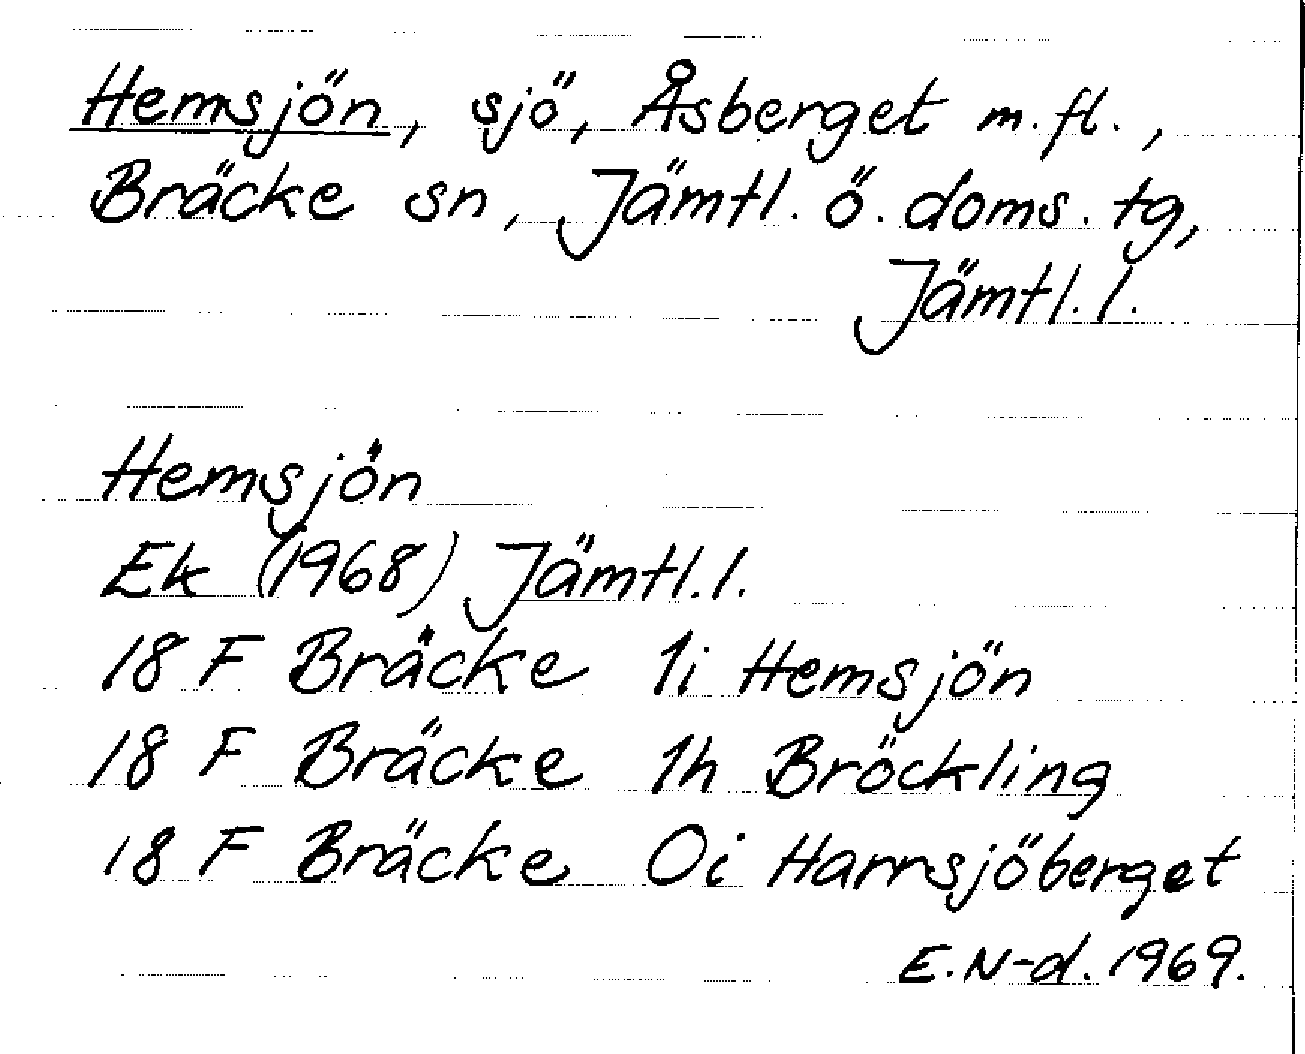 Hemsjön, sjö, Åsberget m.fl.,
Bräcke sn, Jämtl. ö. doms. tg,
Jämtl. l.
Hemsjön
Ek (1968) Jämtl. l.
18 F Bräcke 1i Hemsjön
18 F Bräcke 1h Bröckling
18 F Bräcke 0i Harrsjöberget
E. N-d. 1969.